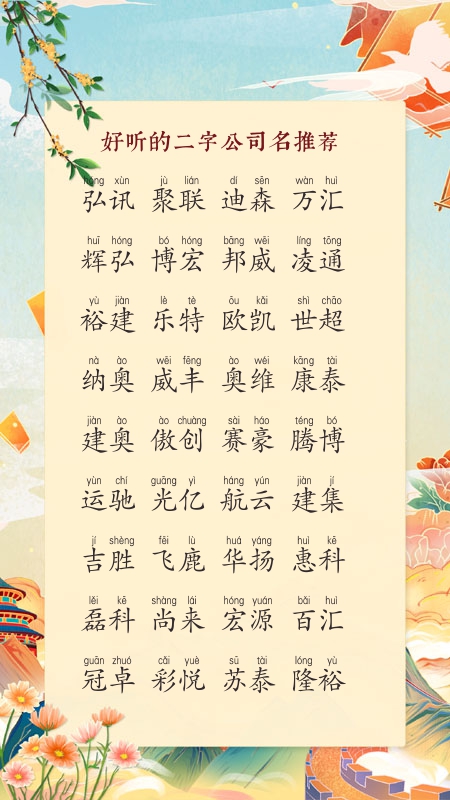 好听的二字公司名推荐
hóng xùn jù lián dí sēn wàn huì
弘讯 聚联 迪森 万汇
huī hóng bó hóng bāng wēi líng tōng
辉弘 博宏 邦威 凌通
yù jiàn lè tè ōu kǎi shì chāo
裕建 乐特 欧凯 世超
nà ào wēi fēng ào wéi kāng tài
纳奥 威丰 奥维 康泰
jiàn ào ào chuàng sài háo téng bó
建奥 傲创 赛豪 腾博
yùn chí guāng yì háng yún jiàn jí
运驰 光亿 航云 建集
jí shèng fēi lù huá yáng huì kē
吉胜 飞鹿 华扬 惠科
lěi kē shàng lái hóng yuán bǎi huì
磊科 尚来 宏源 百汇
guān zhuó cǎi yuè sū tài lóng yù
冠卓 彩悦 苏泰 隆裕